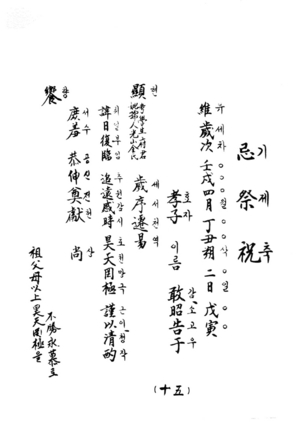 기 제 축
忌祭祝
유세차 ○○○월 ○○삭 ○일 ○○
維歲次 壬戌四月 丁丑朔 二日 戊寅
효자 감소고우
孝子 이름 敢昭告于
현
顯考學生府君
顯妣孺人光山金氏
세서천역
歲序遷易
휘일부림 추원감시 호천망극 근이청작
諱日復臨 追遠感時 昊天罔極 謹以淸酌
서수 공신전헌 상
庶羞 恭伸奠獻 尙
향
饗
祖父母以上 昊天罔極을
不勝永慕로
(十五)